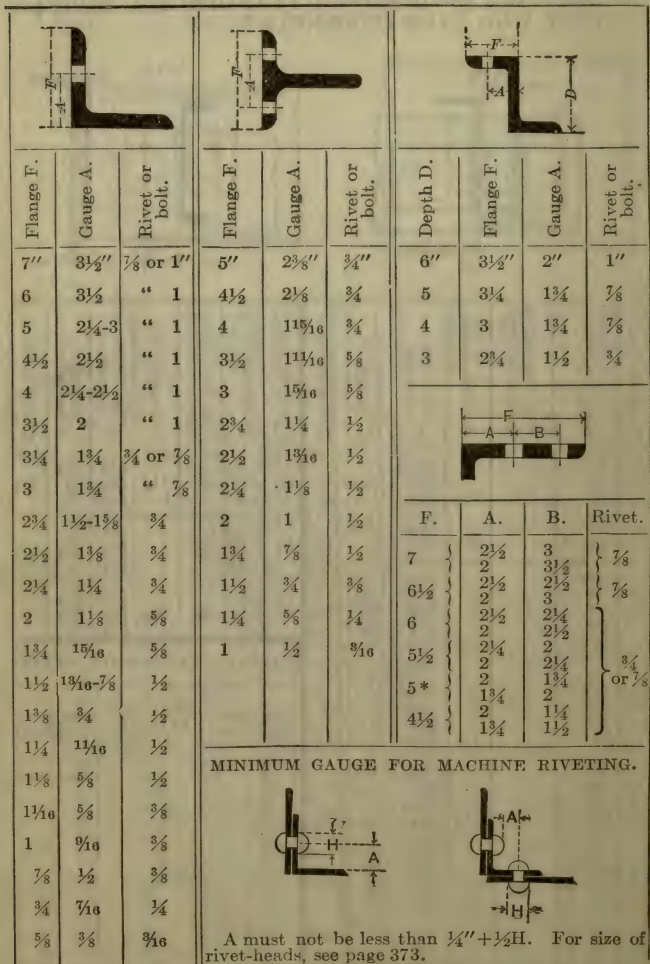 F A
F A
F A D
Flange F. Gauge A. Rivet or bolt.
7″ 3½″ ⅞ or 1″
6 3½ “ 1
5 2¼-3 “ 1
4½ 2½ “ 1
4 2¼-2½ “ 1
3½ 2 “ 1
3¼ 1¾ ¾ or ⅞
3 1¾ “ ⅞
2¾ 1½-1⅝ ¾
2½ 1⅜ ¾
2¼ 1¼ ¾
2 1⅛ ⅝
1¾ 15/16 ⅝
1½ 13/16-⅞ ½
1⅜ ¾ ½
1¼ 11/16 ½
1⅛ ⅝ ½
11/16 ⅝ ⅜
1 9/16 ⅜
⅞ ½ ⅜
¾ 7/16 ¼
⅝ ⅜ 3/16
Flange F. Gauge A. Rivet or bolt.
5″ 2⅜″ ¾″
4½ 2⅛ ¾
4 115/16 ¾
3½ 111/16 ⅝
3 15/16 ⅝
2¾ 1¼ ½
2½ 13/16 ½
2¼ 1⅛ ½
2 1 ½
1¾ ⅞ ½
1½ ¾ ⅜
1¼ ⅝ ¼
1 ½ 3/16
Depth D. Flange F. Gauge A. Rivet or bolt.
6″ 3½″ 2″ 1″
5 3¼ 1¾ ⅞
4 3 1¾ ⅞
3 2¾ 1½ ¾
F
A B
F. A. B. Rivet.
7 2½ 3 ⅞
2 3½
6½ 2½ 2½ ⅞
2 3
6 2½ 2¼
2 2½
5½ 2¼ 2
2 2¼ ¾
5* 2 1¾ or ⅞
1¾ 2
4½ 2 1¼
1¾ 1½
MINIMUM GAUGE FOR MACHINE RIVETING.
H A
A H
A must not be less than ¼″+½H. For size of
rivet-heads, see page 373.